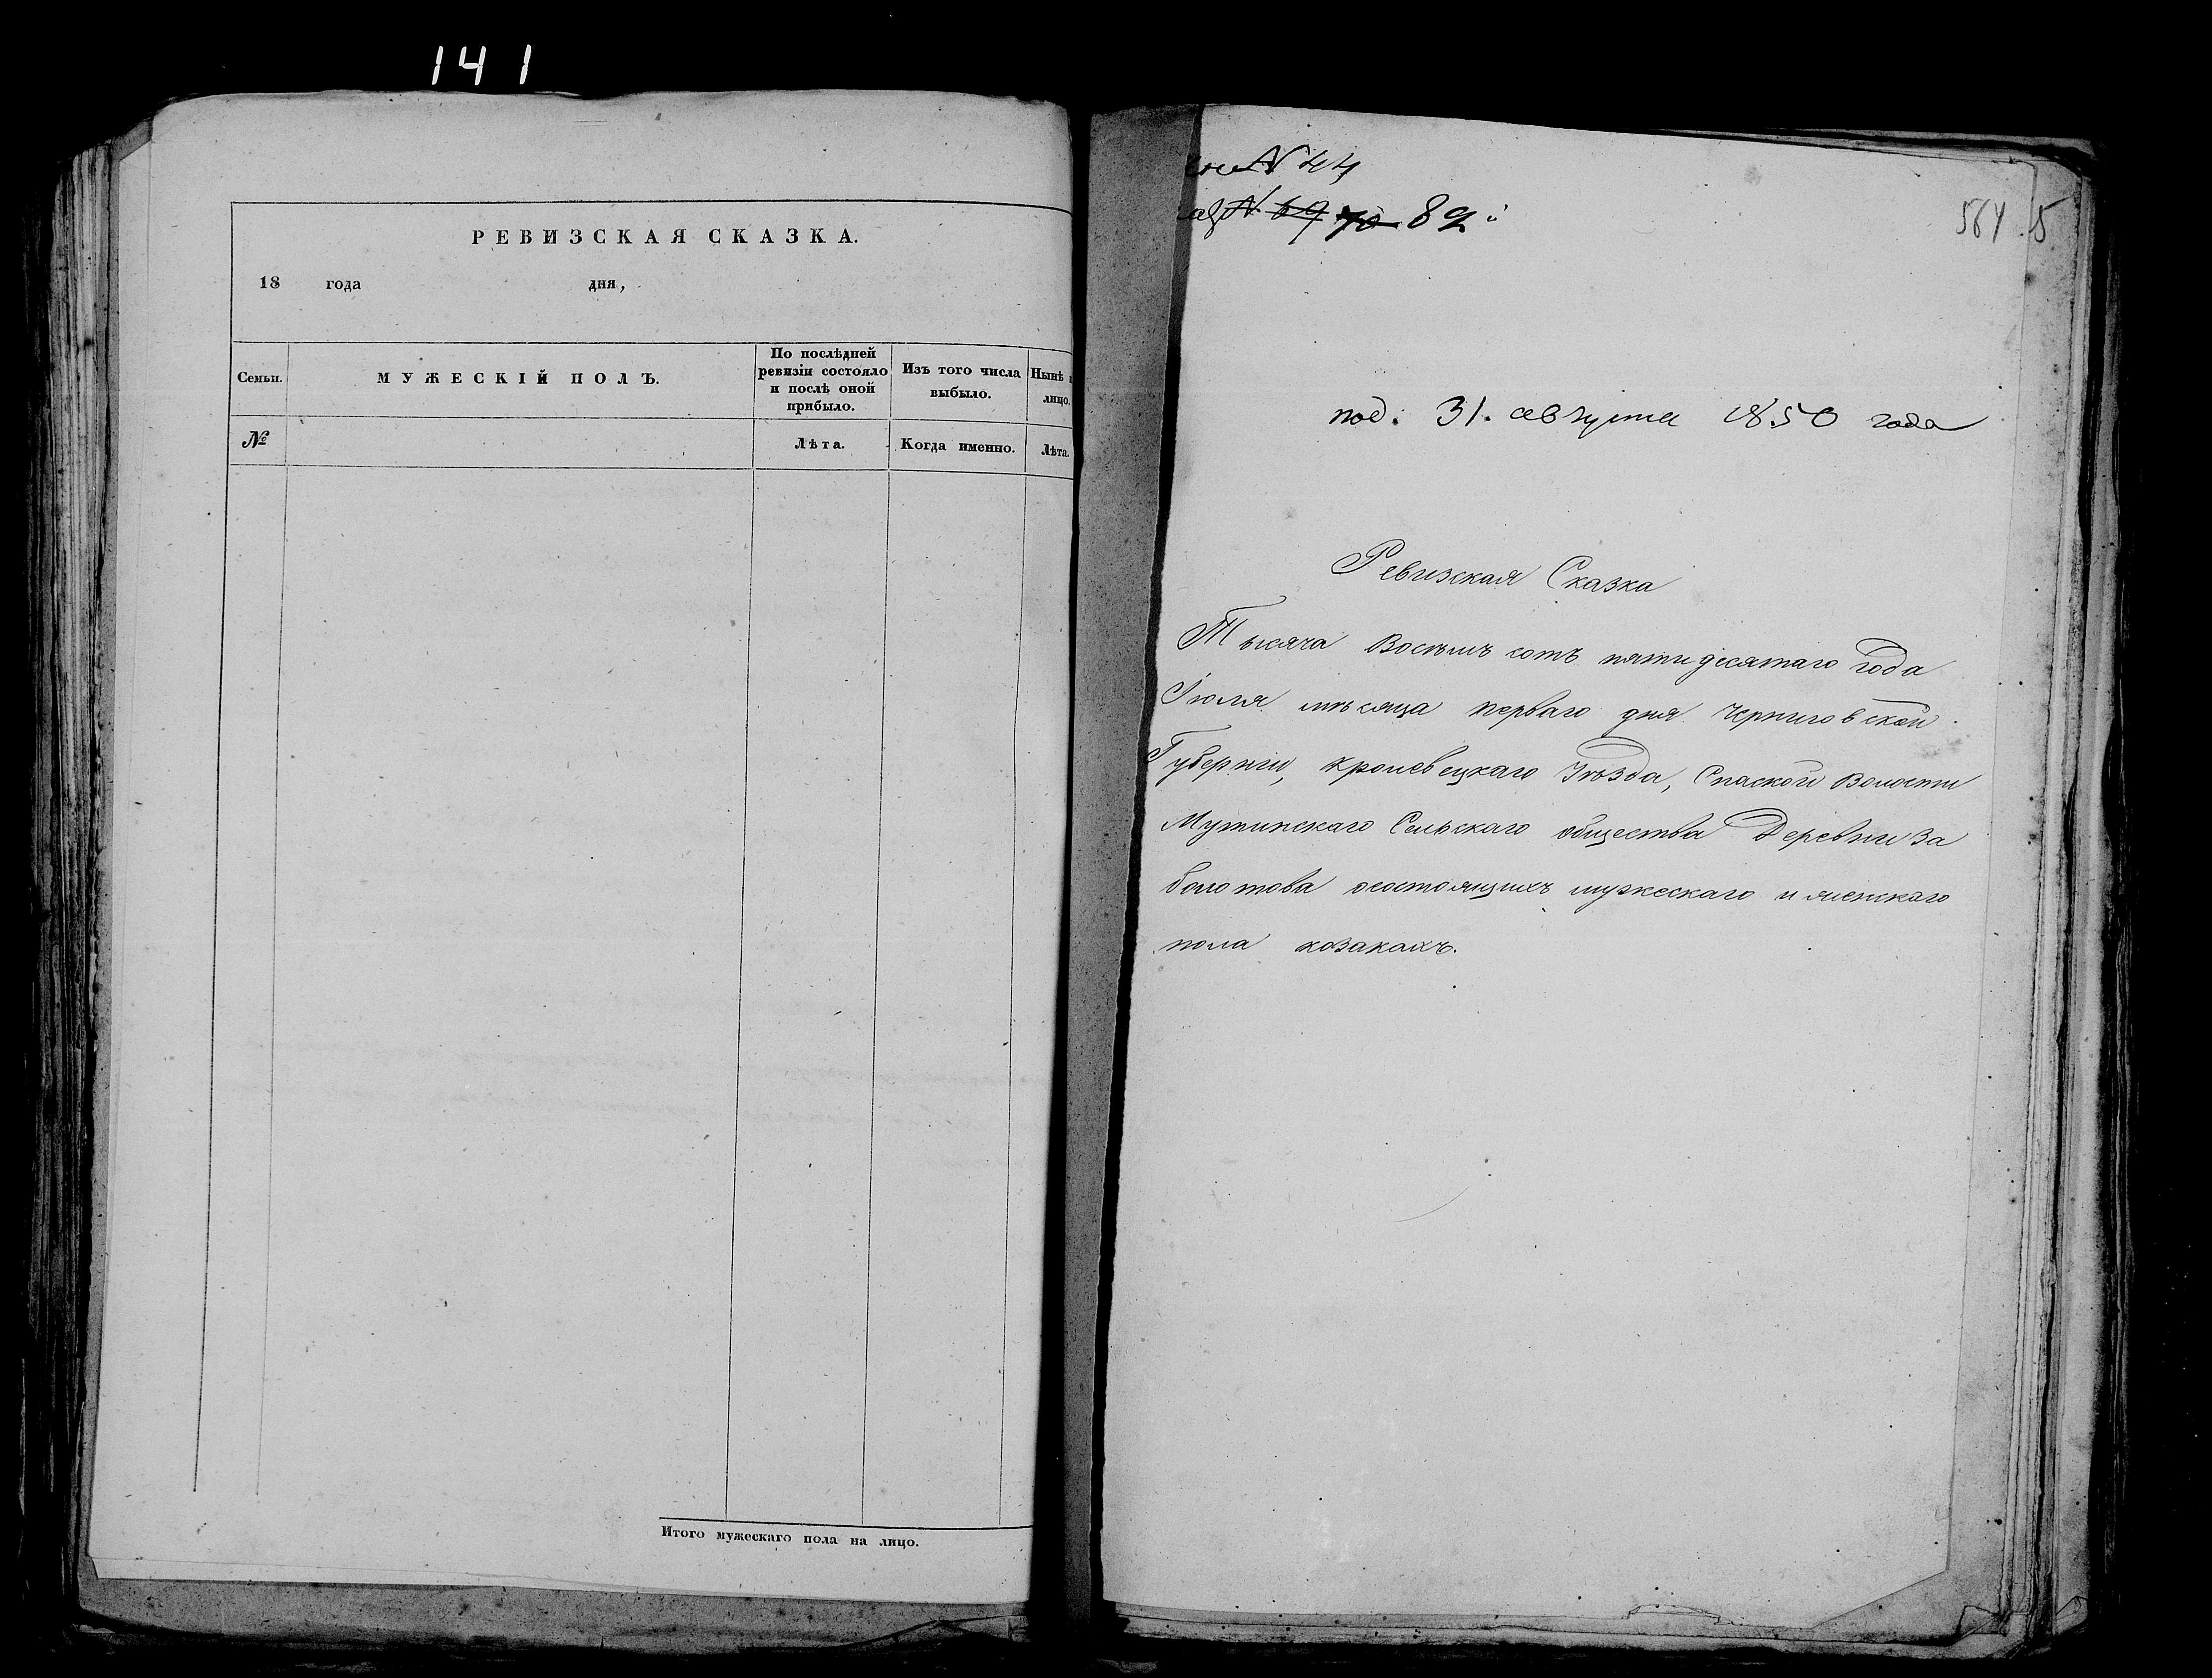 141
РЕВИЗСКАЯ СКАЗКА.
18 года дня,
Семьи.
МУЖЕСКІЙ ПОЛЪ.
По послѣдней
ревизіи состояло
и послѣ оной
прибыло.
Изъ того числа
выбыло.
Нынѣ
лицо.
№
Лѣта.
Когда именно.
Лѣта.
Итого мужескаго пола на лицо.
N 44
N 69 70 89
564
под. 31. августа 1850 года
Ревизская Сказка
Тысяча Восѣмъ сотъ пятидесятаго года
Іюля мѣсяца перваго дня Черниговской
Губерніи, Кролевецкаго Уѣзда, Спаской Волости
Мутинскаго Селькаго общества Деревни За
болотова осостоящихъ мужескаго и женскаго
пола козакахъ.